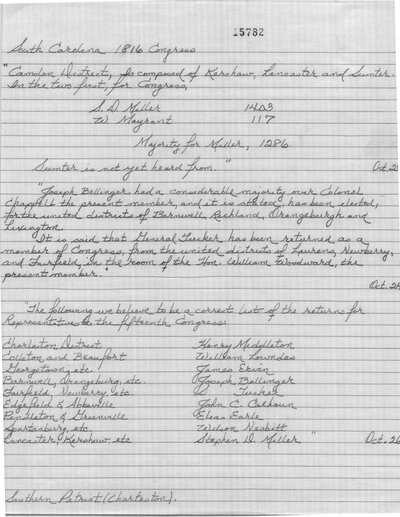 15782
South Carolina 1816 Congress
"Camden District, is composed of Kershaw, Lancaster and Sumter.
In the two first, for Congress,
S D Miller 1403
W Mayrant 117
Majority for Miller, 1286
Sumter is not yet heard from."
"Joseph Bellinger had a considerable majority over Colonel
Chappell the present member, and it is stated has been elected,
for the united districts of Barnwell Richland, Orangeburgh and
Lexington.
It is said that General Tucker has been returned as a
member of Congress, from the united districts of Laurens, Newberry,
and Fairfield, in the room of the Hon. William Woodward, the
present member."
"The following we believe to be a correct list of the returns for
Representatives to the fifteenth Congress:
Charleston District Henry Middleton
Colleton and Beaufort William Lowndes
Georgetown, etc. James Ervin
Barnwell, Orangeburg, etc. Joseph Bellinger
Fairfield, Newberry, etc. Tucker
Edgefield & Abbeville John C. Calhoun
Pendleton & Greenville Elias Earle
Spartanburg, etc. Wilson Nesbitt
Lancaster, Kershaw etc Stephen D. Miller " Oct. 26
Southern Patriot (Charleston).